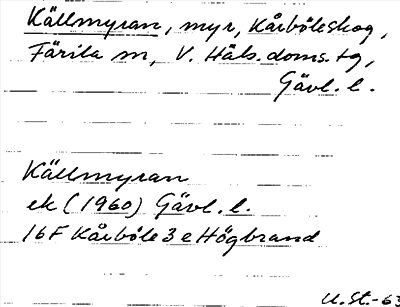 Källmyran, myr, Kårböleskog,
Färila sn, V. Häls. doms. tg,
Gävl. l.
Källmyran
ek (1960) Gävl. l.
16F Kårböle 3 e Högbrand
U.St.-63